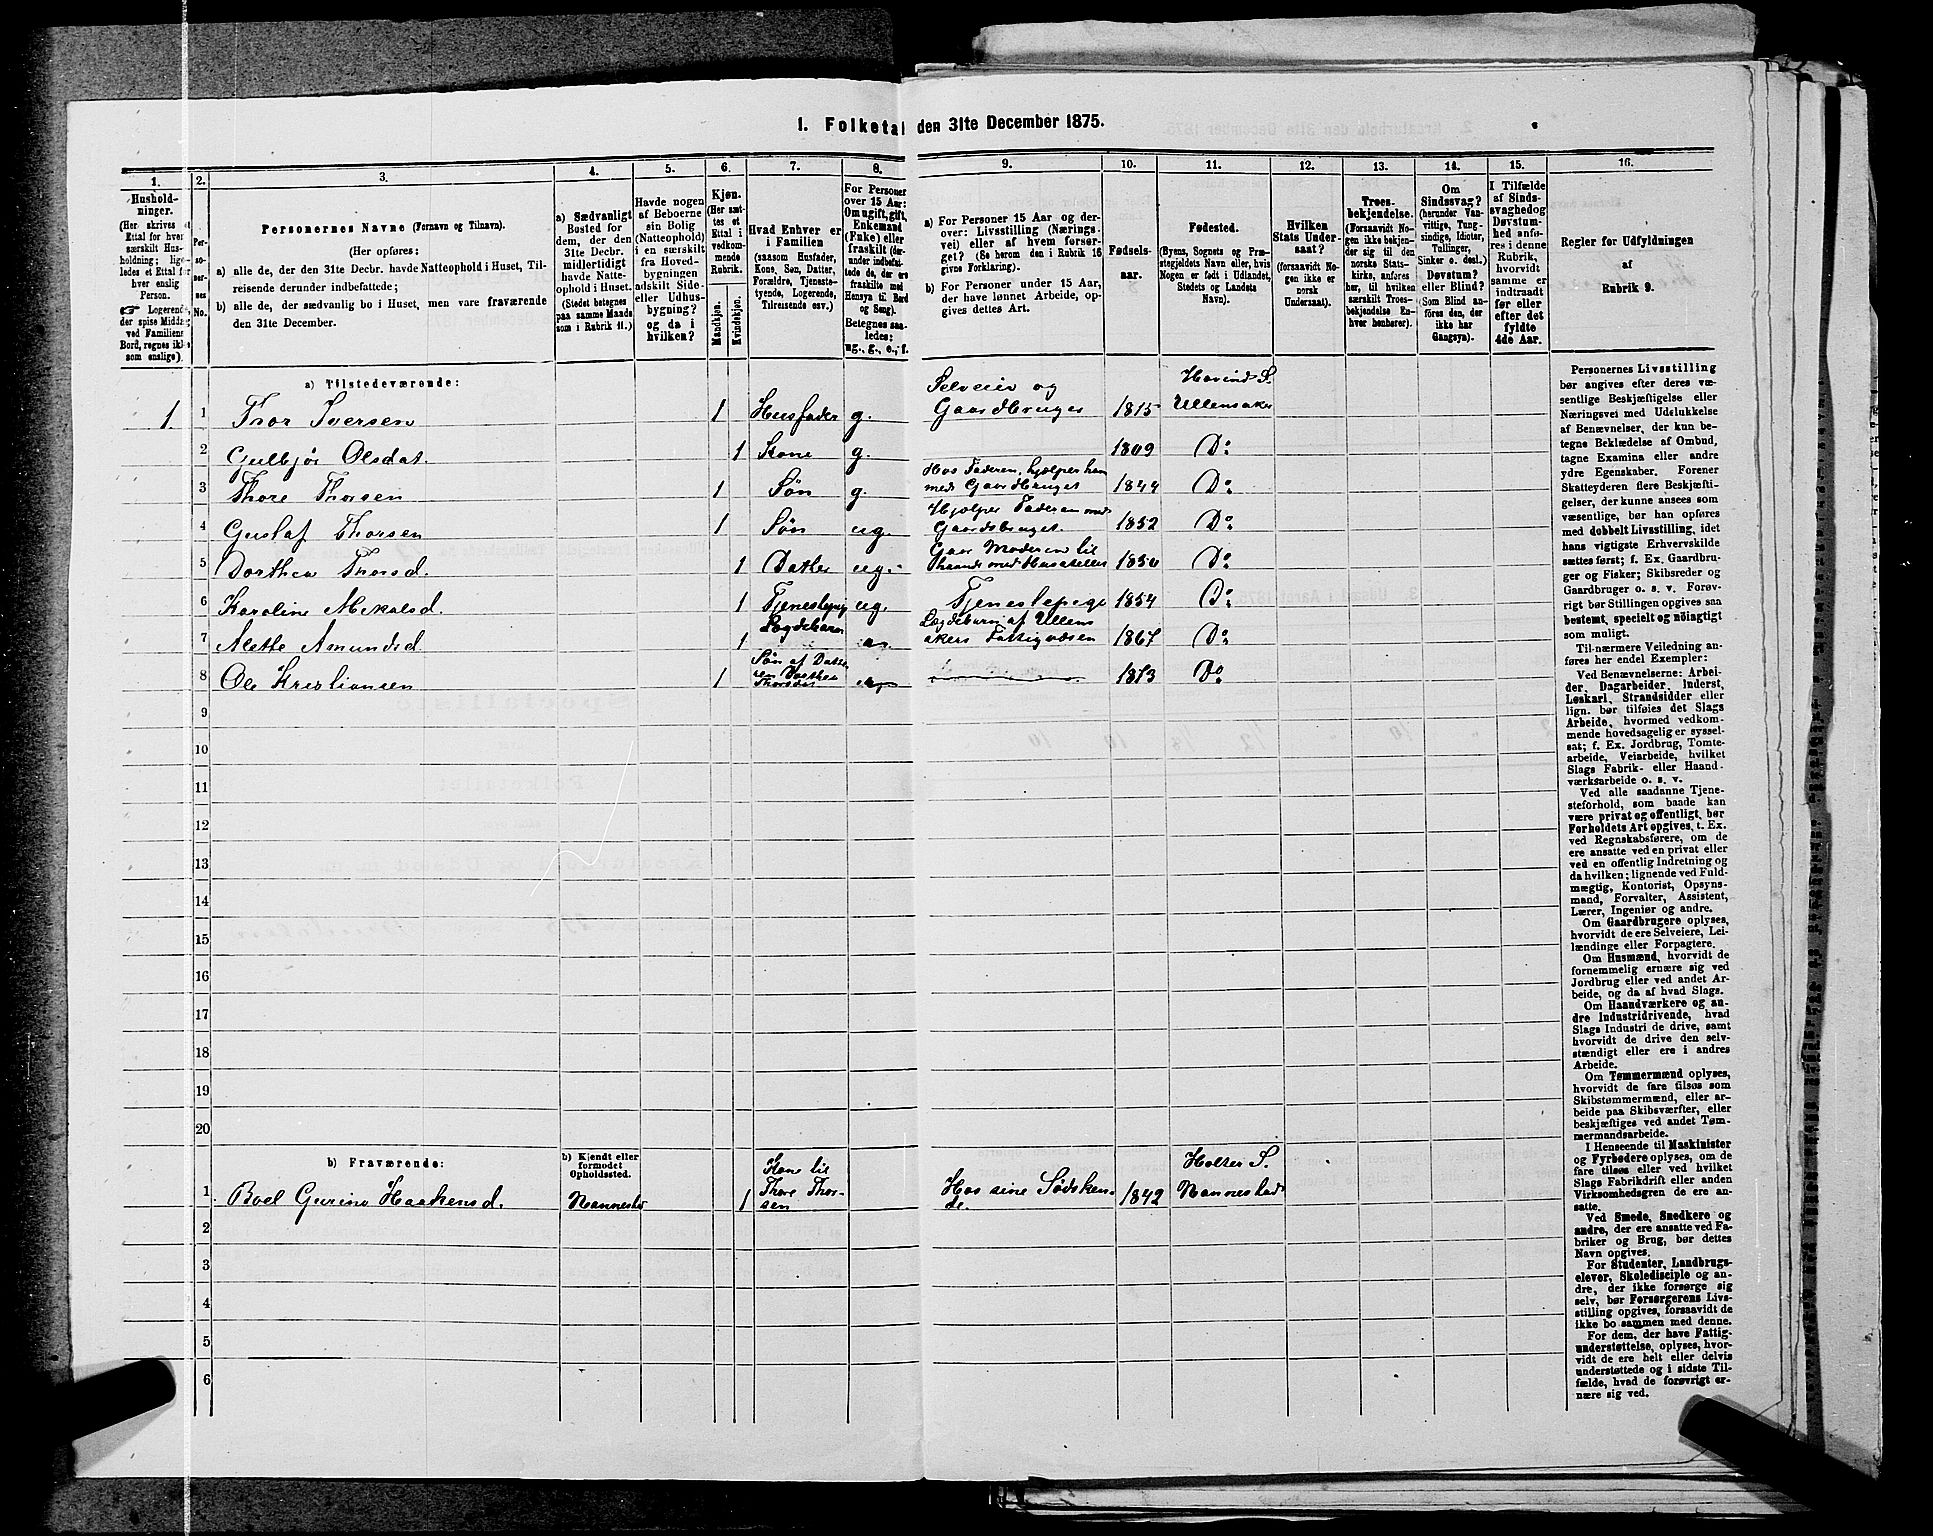 1. Folketal den 31te December 1875.
1. 2. 3. 4. 5. 6. 7. 8. 9. 10. 11. 12. 13. 14. 15. 16.
Hushold-
ninger.
(Her skrives et
Ettal for hver
særskilt Hus-
holdning; lige-
ledes et Ettal for
hver enslig
Person.
☞ Logerende,
der spise Middag
ved Familiens
Bord, regnes ikke
som enslige).
Per-
so-
ner-
nes
No.
Personernes Navne (Fornavn og Tilnavn).
(Her opføres:
a) alle de, der den 31te Decbr. havde Natteophold i Huset, Til-
reisende derunder indbefattede;
b) alle de, der sædvanlig bo i Huset, men vare fraværende
den 31te December.
a) Sædvanligt
Bosted for
dem, der den
31te Decbr.
midlertidigt
havde Natte-
ophold i Huset.
(Stedet betegnes
paa samme Maade
som i Rubrik 11.)
Havde nogen
af Beboerne
sin Bolig
(Natteophold)
i en særskilt
fra Hoved-
bygningen
adskilt Side-
eller Udhus-
bygning?
og da i
hvilken?
Kjøn.
(Her sæt-
tes et
Ettal i
vedkom-
mende
Rubrik.
Mandkjøn.
Kvindekjøn.
Hvad Enhver er
i Familien
(saasom Husfader,
Kone, Søn, Datter,
Forældre, Tjeneste-
tyende, Logerende,
Tilreisende osv.)
For Personer
over 15 Aar:
Om ugift, gift,
Enkemand
(Enke) eller
fraskilt (der-
under indbefat-
tede de, der ere
fraskilte med
Hensyn til Bord
og Seng).
Betegnes saa-
ledes:
ug., g., e., f.
a) For Personer 15 Aar og der-
over: Livsstilling (Nærings-
vei) eller af hvem forsør-
get? (Se herom den i Rubrik 16
givne Forklaring).
b) For Personer under 15 Aar,
der have lønnet Arbeide, op-
gives dettes Art.
Fødsels-
aar.
Fødested.
(Byens, Sognets og Præ-
stegjeldets Navn eller, hvis
Nogen er født i Udlandet,
Stedets og Landets
Navn).
Hvilken
Stats Under-
saat?
(forsaavidt No-
gen ikke er
norsk
Undersaat).
Troes-
bekjendelse.
(Forsaavidt No-
gen ikke bekjen-
der sig til den
norske Stats-
kirke, anføres
her, til hvilken
særskilt Troes-
bekjendelse En-
hver henhører).
Om
Sindssvag?
(herunder Van-
vittige, Tung-
sindige, Idioter,
Tullinger,
Sinker o. desl.)
Døvstum?
eller Blind?
(Som Blind an-
føres den, der
ikke har
Gangsyn).
I Tilfælde
af Sinds-
svaghed og
Døvstum-
hed anfø-
res i denne
Rubrik,
hvorvidt
samme er
indtraadt
før eller
efter det
fyldte
4de Aar.
Regler for Udfyldningen
af
Rubrik 9.
a) Tilstedeværende:
1 1 Thor Iversen 1 Husfader g. Selveier og Gaardbruger 1815 Hovind S. Ullensaker
2 Gulbjør Olsdat. 1 Kone g. 1809 Do
3 Thore Thorsen 1 Søn g. Hos Faderen, hjelper ham med Gaardbruget 1844 Do
4 Gustaf Thorsen 1 Søn ug. Hjelper Faderen med Gaardsbruget. 1852 Do
5 Dorthea Thorsd. 1 Datter ug. Gaar Moderen til Haande med Husstellet 1850 Do
6 Karoline Mekalsd. 1 Tjenestepige ug. Tjenestepige 1854 Do
7 Alette Amundsd. 1 Lægdebarn Lægdebarn af Ullensakers Fattigvæsen 1867 Do
8 Ole Kristiansen 1 Søn af Datteren Dorthea Thorsdat 1873 Do
9
10
11
12
13
14
15
16
17
18
19
20
b) Fraværende:
b) Kjendt eller
formodet
Opholdssted.
1 Boel Gurine Haakensd. Nannestad 1 Kone til Thore Thorsen Hos sine Sødskende. 1842 Holter S. Nannestad
2
3
4
5
6
Personernes Livsstilling
bør angives efter deres væ-
sentlige Beskjæftigelse eller
Næringsvei med Udelukkelse
af Benævnelser, der kun be-
tegne Beklædelse af Ombud,
tagne Examina eller andre
ydre Egenskaber. Forener
Skatteyderen flere Beskjæfti-
gelser, der kunne ansees som
væsentlige, bør han opføres
med dobbelt Livsstilling, idet
hans vigtigste Erhvervskilde
sættes først; f. Ex. Gaardbru-
ger og Fisker; Skibsreder og
Gaardbruger o. s. v. Forøv-
rigt bør Stillingen opgives saa
bestemt, specielt og nøiagtigt
som muligt.
Til nærmere Veiledning an-
føres her endel Exempler:
Ved Benævnelserne: Arbei-
der, Dagarbeider, Inderst,
Løskarl, Strandsidder eller
lign. bør tilføies det Slags
Arbeide, hvormed vedkom-
mende hovedsagelig er syssel-
sat; f. Ex. Jordbrug, Tomte-
arbeide, Veiarbeide, hvilket
Slags Fabrik- eller Haand-
værksarbeide o. s. v.
Ved alle saadanne Tjene-
steforhold, som baade kan
være privat og offentligt, bør
Forholdets Art opgives, t. Ex.
ved Regnskabsførere, om de
ere ansatte ved en privat eller
ved en offentlig Indretning og
da hvilken; lignende ved Fuld-
mægtig, Kontorist, Opsyns-
mand, Forvalter, Assistent,
Lærer, Ingeniør og andre.
Om Gaardbrugere oplyses,
hvorvidt de ere Selveiere, Lei-
lændinge eller Forpagtere.
Om Husmænd, hvorvidt de
fornemmelig ernære sig ved
Jordbrug eller ved andet Ar-
beide, og da af hvad Slags.
Om Haandværkere og an-
dre Industridrivende, hvad
Slags Industri de drive, samt
hvorvidt de drive den selv-
stændigt eller ere i andres
Arbeide.
Om Tømmermænd oplyses,
hvorvidt de fare tilsøs som
Skibstømmermænd, eller ar-
beide paa Skibsværfter, eller
beskjæftiges ved andet Tøm-
mermandsarbeide.
I Henseende til Maskinister
og Fyrbødere oplyses, om de
fare tilsøs eller ved hvilket
Slags Fabrikdrift eller anden
Virksomhedsgren de ere an-
satte.
Ved Smede, Snedkere og
andre, der ere ansatte ved Fa-
briker og Brug, bør dettes
Navn opgives.
For Studenter, Landbrugs-
elever, Skoledisciple og an-
dre, der ikke forsørge sig
selv, bør Forsørgerens Livs-
stilling opgives, forsaavidt de
ikke bo sammen med denne.
For dem, der have Fattig-
understøttelse, oplyses, hvor-
vidt de ere helt eller delvis
understøttede og i sidste Til-
fælde, hvad de forøvrigt er-
nære sig ved.